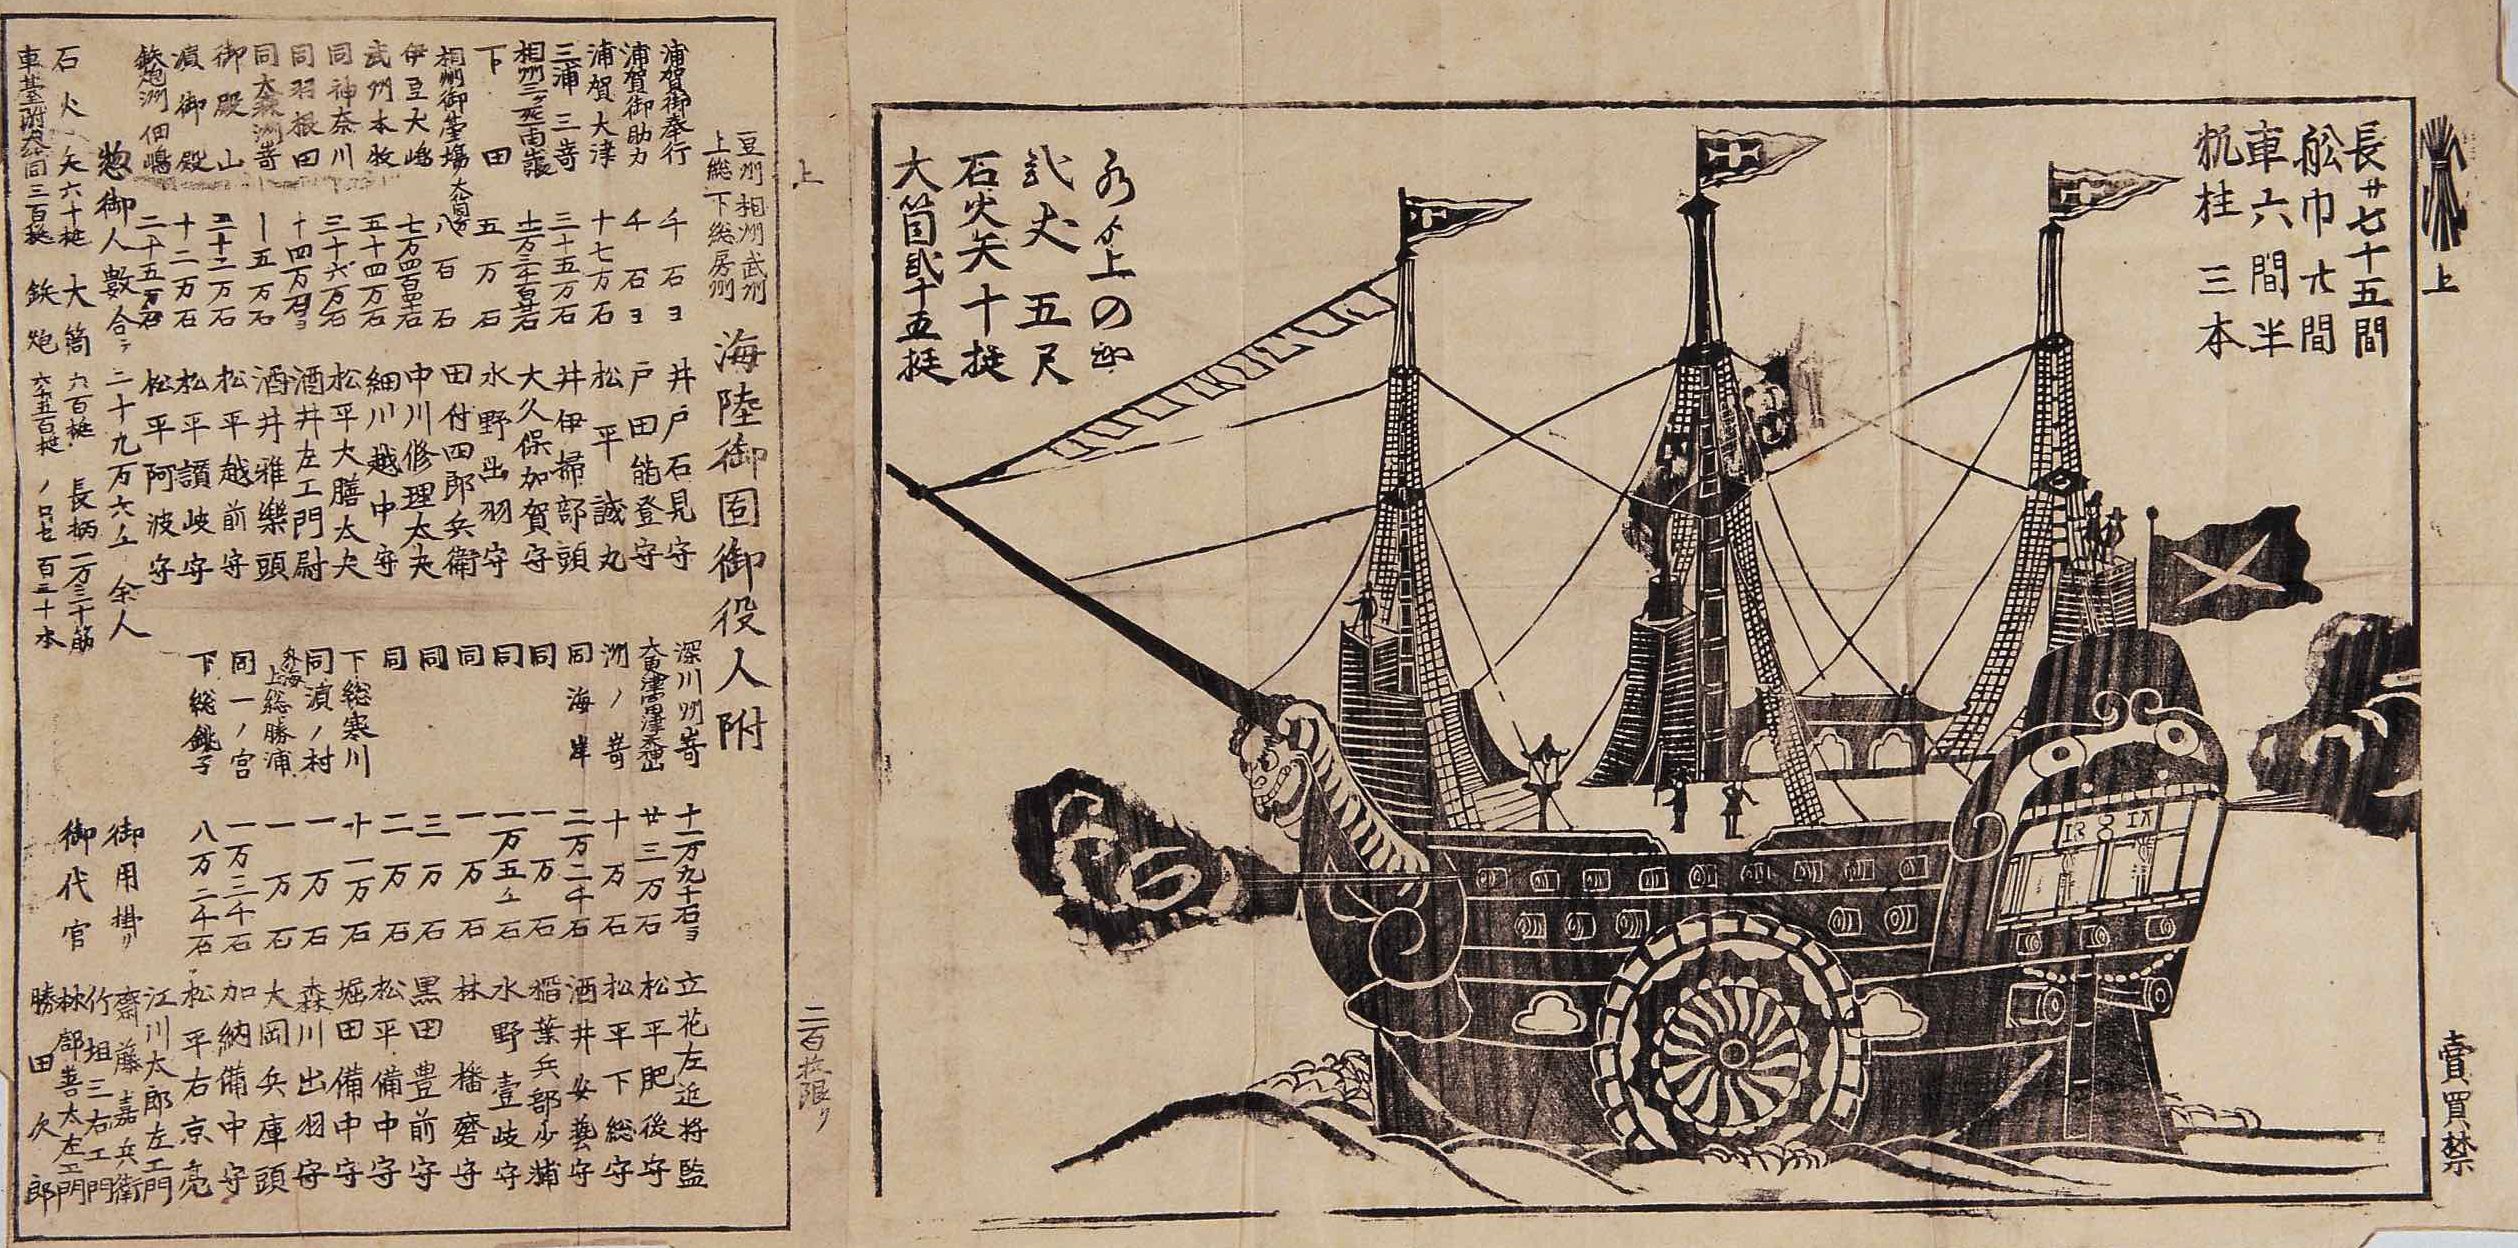 上
長サ七十五間
舩巾廿間
車六間半
帆柱三本
水より上の
弐丈五尺
石火矢十挺
大筒弐十五挺
賣買禁
上
二百枚限り
豆州相州武州
上総下総房州
海陸御固御役人附
浦賀御奉行 千石ヨ 井戸石見守
浦賀御助力 千石ヨ 戸田能登守
浦賀大津 十七万石 松平誠丸
三浦三嵜 三十五万石 井伊掃部頭
大久保加賀守
下田 五万石 水野出羽守
相州御臺場 八百石 田付四郎兵衛
伊豆大嶋 中川修理太夫
武州本牧 五十四万石 細川越中守
同神奈川 三十六万石 松平大膳太夫
同羽根田 十四万石ヨ 酒井左工門尉
同大森洲嵜 十五万石 酒井雅樂頭
御殿山 三十二万石 松平越前守
濵御殿 十二万石 松平讃岐守
鉄炮洲佃嶋 二十五万石 松平阿波守
惣御人數合テ 二十九万六千余人
石火矢六十挺 大筒六百挺 長柄一万三千筋
車臺附大筒三百挺 鉄炮
深川洲嵜 十一万九千石ヨ 立花左近将監
廿三万石 松平肥後守
洲ノ嵜 十万石 松平下総守
同海岸 二万二千石 酒井安藝守
同 一万石 稲葉兵部少輔
同 一万五千石 水野壹岐守
同 一万石 林播磨守
同 三万石 黒田豊前守
同 二万石 松平備中守
下総寒川 十一万石 堀田備中守
同濵ノ村 一万石 森川出羽守
外海上総勝浦 一万石 大岡兵庫頭
同一ノ宮 一万三千石 加納備中守
下総銚子 八万二千石 松平右京亮
御用掛り
江川太郎左工門
齋藤嘉兵衛
御代官
竹垣三右工門
林部善太左工門
勝田次郎